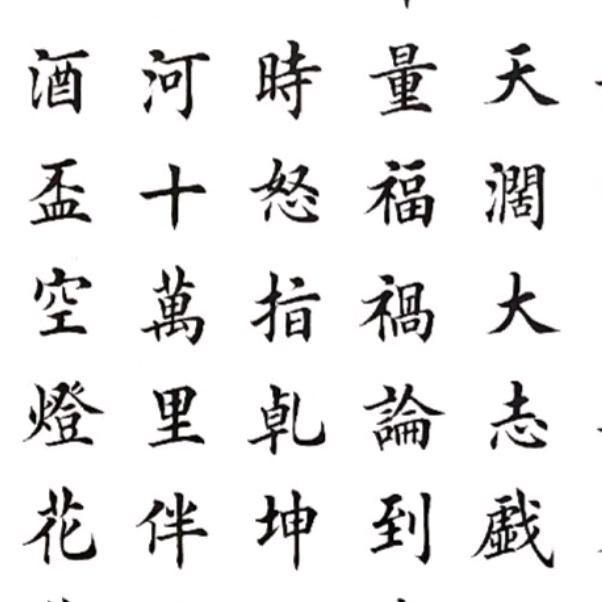 天濶大志戯
量福禍論到
時怒指乹坤
河十萬里伴
酒盃空燈花